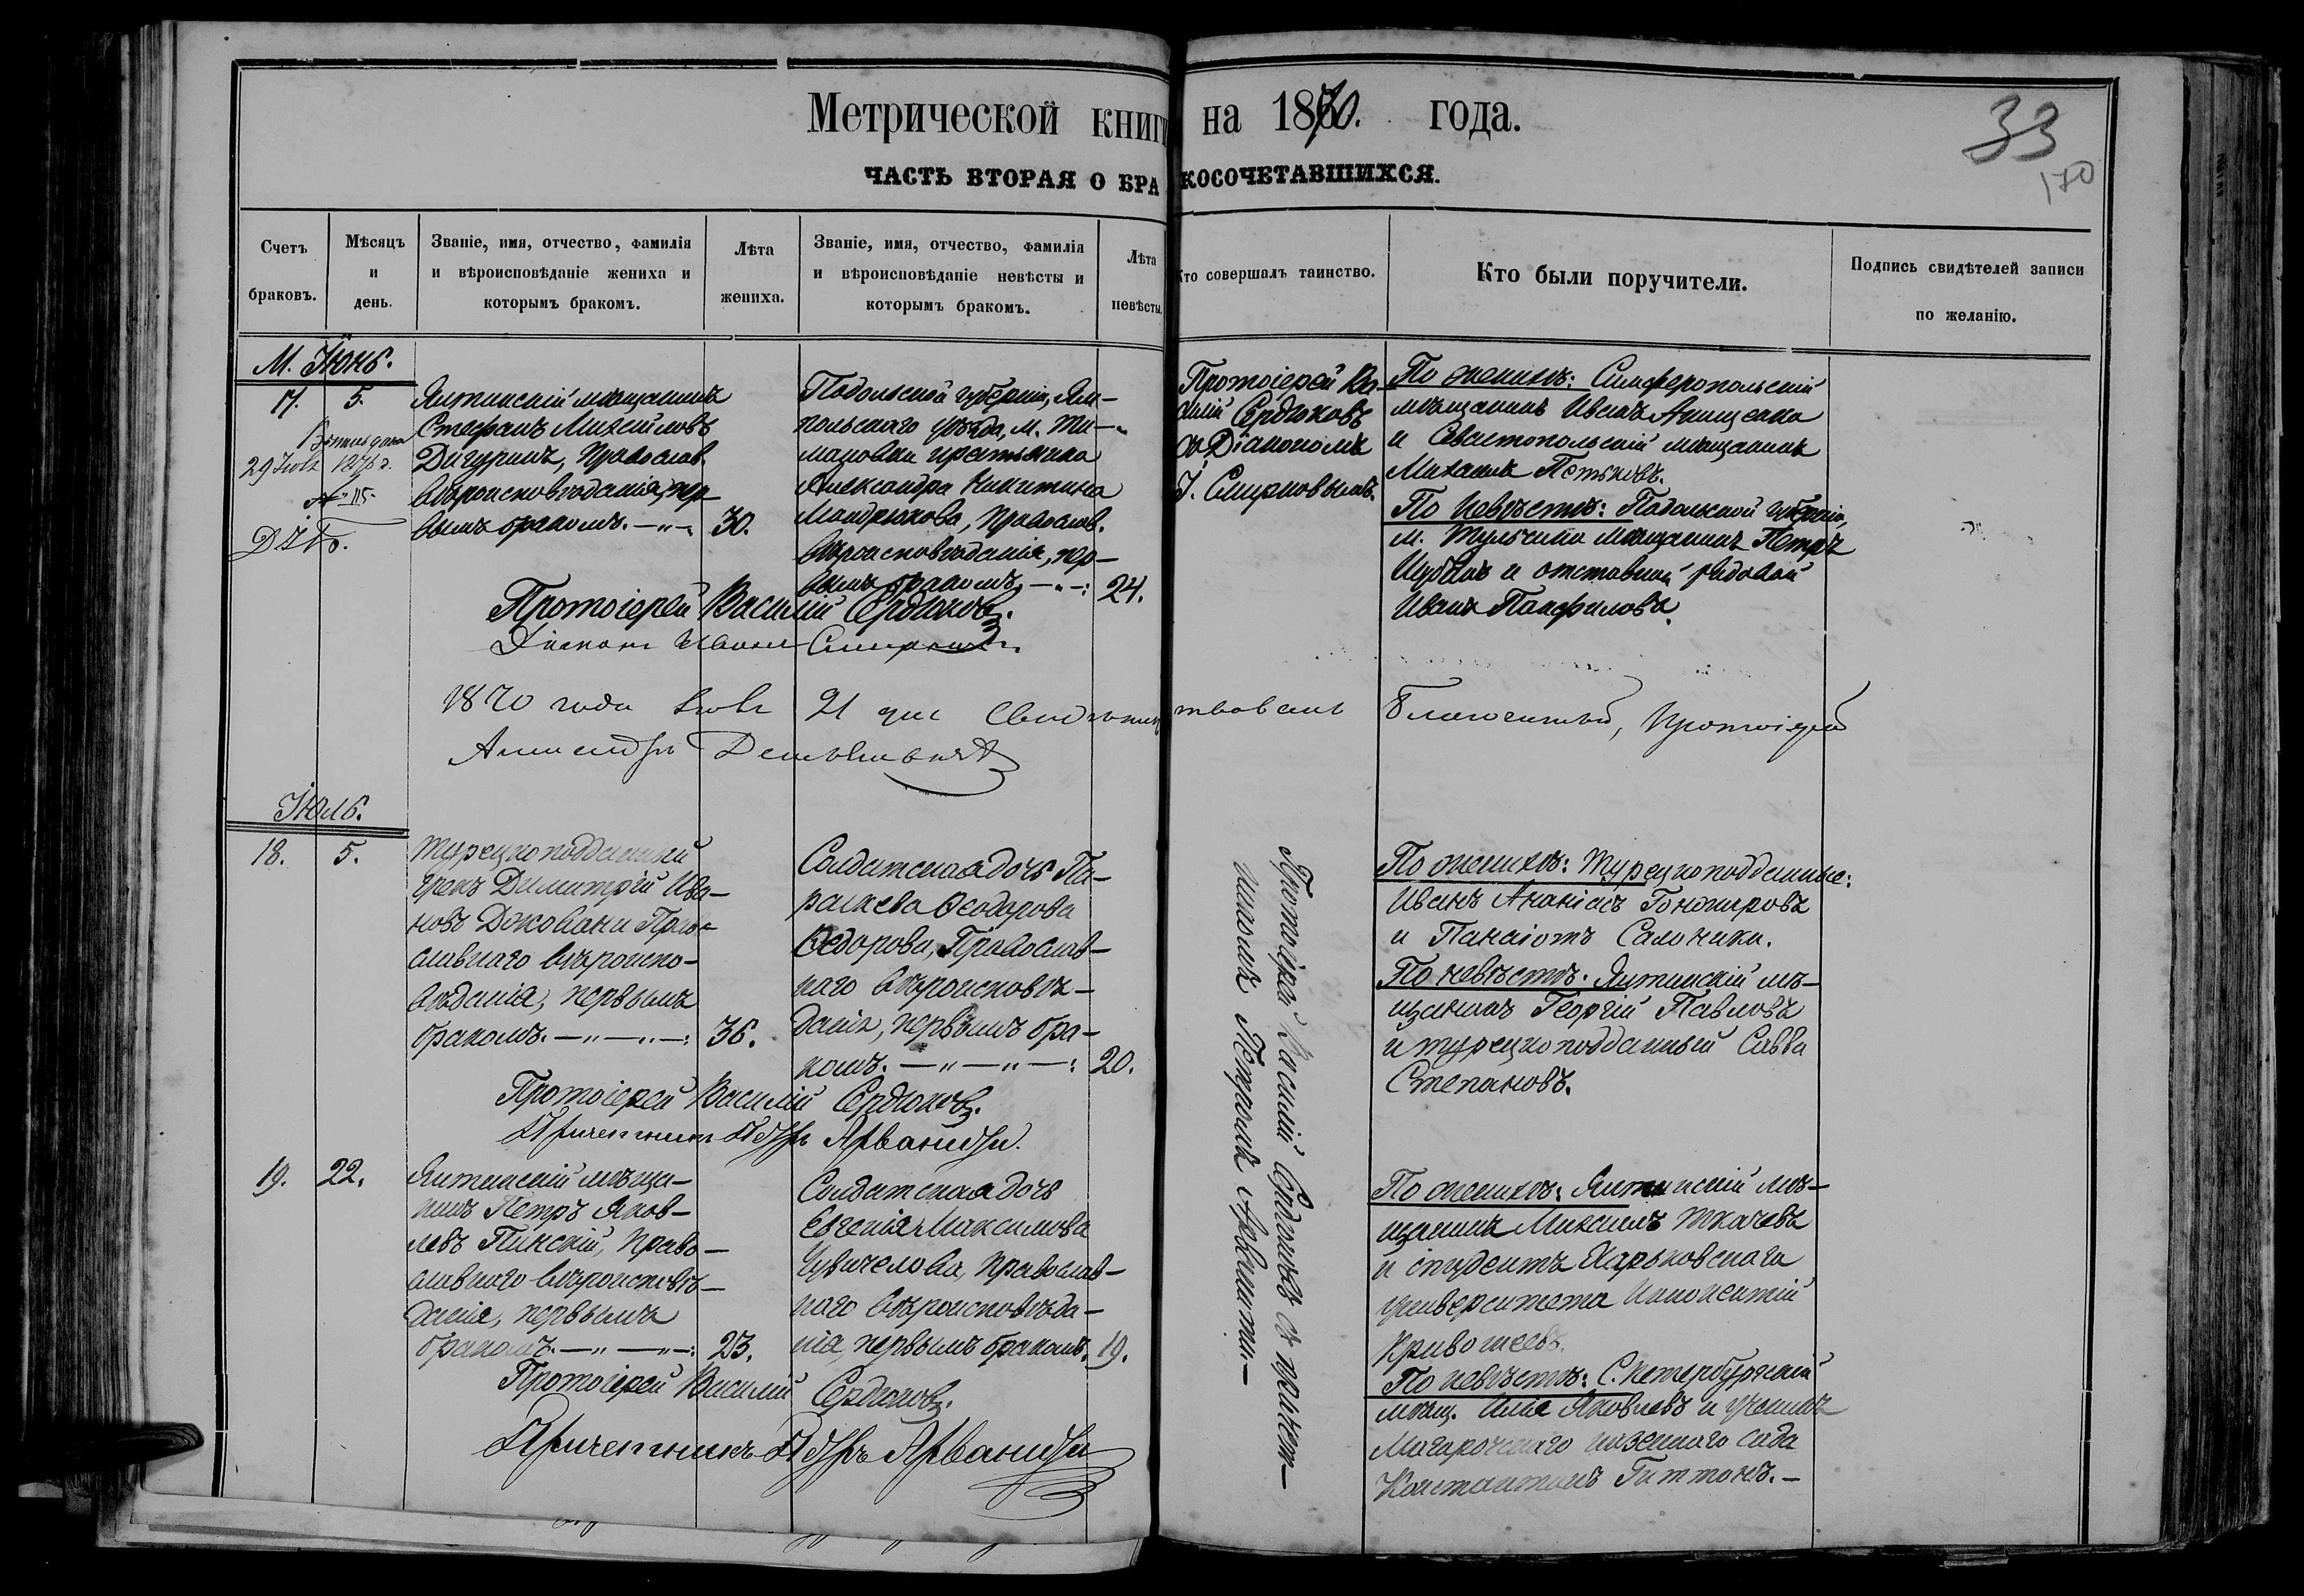 Метрической книги на 1870. года.
33
170
ЧАСТЬ ВТОРАЯ О БРАКОСОЧЕТАВШИХСЯ.
Счетъ браковъ.
Мѣсяцъ и день.
Званіе, имя, отчество, фамилія и вѣроисповѣданіе жениха и которымъ бракомъ.
Лѣта жениха.
Званіе, имя, отчество, фамилія и вѣроисповѣданіе невѣсты и которымъ бракомъ.
Лѣта невѣсты.
Кто совершалъ таинство.
Кто были поручители.
Подпись свидѣтелей записи по желанію.
М. Іюнь.
17.
5.
29 Іюля 1876 г.
№ 115.
Ялтинскій мѣщанинъ
Стефанъ Михайловъ
Дигуринъ, Православ.
вѣроисповѣданія, пер-
вымъ бракомъ.
30.
Подольской губерніи, Ям-
польскаго уѣзда, м. То-
машовки крестьянка
Александра Никитина
Мандрыкова, Православ.
вѣроисповѣданія, пер-
вымъ бракомъ
24.
Протоіерей Ва-
силій Сердюковъ
съ Діакономъ
І. Смирновымъ.
По женихѣ: Симферопольскій
мѣщанинъ Иванъ Анищенко
и Севастопольскій мѣщанинъ
Михаилъ Петьковъ.
По Невѣстѣ: Подольской губерніи,
м. Тульчина мѣщанинъ Петръ
Цыбань и отставной рядовой
Иванъ Панфиловъ.
Протоіерей Василій Сердюковъ.
Діаконъ Иванъ Смирновъ
1870 года Іюля 21 дня Свидѣтельствовалъ Благочинный, Протоіерей
Александръ
Іюль.
18.
5.
Турецкоподданный
грекъ Димитрій Ива-
новъ Дżовани Право-
славнаго вѣроиспо-
вѣданія, первымъ
бракомъ.
36.
Солдатская дочь Па-
раскева Ѳеодорова
Ѳедорова, Православ-
наго вѣроисповѣ-
данія, первымъ бра-
комъ.
20.
Протоіерей Василій Сердюковъ съ причет-
никомъ Петромъ Арванити.
По женихѣ: Турецкоподданные:
Иванъ Ананіасъ Гономировъ
и Панаіотъ Салоники.
По невѣстѣ: Ялтинскій мѣ-
щанинъ Георгій Павловъ
и турецкоподданный Савва
Степановъ.
Протоіерей Василій Сердюковъ.
Причетникъ Петръ Арваниди.
19.
22.
Ялтинскій мѣща-
нинъ Петръ Яков-
левъ Пинскій, Право-
славнаго вѣроисповѣ-
данія, первымъ
бракомъ.
23.
Солдатская дочь
Евгенія Максимова
Чувичелова, Православ-
наго вѣроисповѣда-
нія, первымъ бракомъ.
19.
По женихѣ: Ялтинскій мѣ-
щанинъ Михаилъ Ткачевъ
и студентъ Харьковскаго
университета Иннокентій
Кривошеевъ.
По невѣстѣ: С. Петербургскій
мѣщ. Илія Яковлевъ и ученикъ
Магарачскаго казеннаго сада
Константинъ Гиттонъ.
Протоіерей Василій Сердюковъ.
Причетникъ Петръ Арваниди